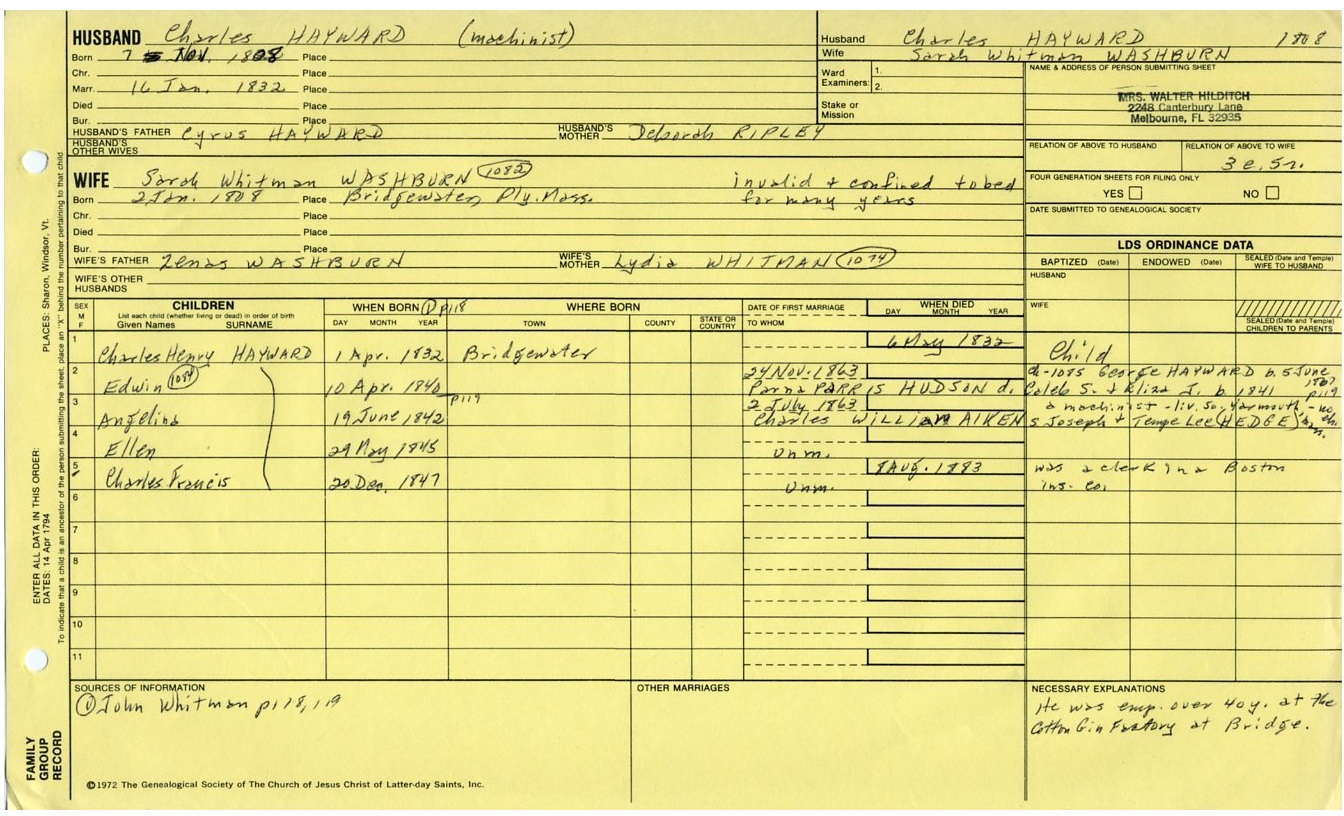 HUSBAND Charles HAYWARD (machinist)
Born 7 Nov. 1808 Place
Chr. Place
Marr. 16 Jan. 1832 Place
Died Place
Bur. Place
HUSBAND'S FATHER Cyrus HAYWARD HUSBAND'S MOTHER Deborah RIPLEY
HUSBAND'S OTHER WIVES
Husband Charles HAYWARD 1808
Wife Sarah Whitman WASHBURN
Ward Examiners: 1.
2.
Stake or Mission
NAME & ADDRESS OF PERSON SUBMITTING SHEET
MRS. WALTER HILDITCH
2248 Canterbury Lane
Melbourne, FL 32935
RELATION OF ABOVE TO HUSBAND RELATION OF ABOVE TO WIFE
3 c. 5r.
FOUR GENERATION SHEETS FOR FILING ONLY
YES NO
DATE SUBMITTED TO GENEALOGICAL SOCIETY
WIFE Sarah Whitman WASHBURN 1082 invalid + confined to bed
Born 2 Jan. 1808 Place Bridgewater, Ply. Mass. for many years
Chr. Place
Died Place
Bur. Place
WIFE'S FATHER Zenas WASHBURN WIFE'S MOTHER Lydia WHITMAN 1074
WIFE'S OTHER HUSBANDS
LDS ORDINANCE DATA
BAPTIZED (Date) ENDOWED (Date) SEALED (Date and Temple) WIFE TO HUSBAND
HUSBAND
WIFE
SEALED (Date and Temple) CHILDREN TO PARENTS
SEX M F CHILDREN WHEN BORN ① p118 WHERE BORN DATE OF FIRST MARRIAGE WHEN DIED
List each child (whether living or dead) in order of birth
Given Names SURNAME DAY MONTH YEAR TOWN COUNTY STATE OR COUNTRY TO WHOM DAY MONTH YEAR
1 Charles Henry HAYWARD 1 Apr. 1832 Bridgewater 6 May 1832 Child
2 Edwin 1084 10 Apr. 1840 24 Nov. 1863 ch-1085 George HAYWARD b. 5 June 1867
PARRIS HUDSON d. Caleb S. + Eliza J. b. 1841 p119
3 Angelina 19 June 1842 p119 2 July 1863 a machinist - liv. So. Yarmouth - no ch.
Charles WILLIAM AIKEN s Joseph + Tempe Lee (HEDGE)
4 Ellen 29 May 1845 Unm.
5 Charles Francis 20 Dec. 1847 Unm. 8 Aug. 1883 was a clerk in a Boston
ins. co.
6
7
8
9
10
11
SOURCES OF INFORMATION
① John Whitman p118, 119
OTHER MARRIAGES
NECESSARY EXPLANATIONS
He was emp. over 40 y. at the
Cotton Gin Factory at Bridge.
©1972 The Genealogical Society of The Church of Jesus Christ of Latter-day Saints, Inc.
FAMILY GROUP RECORD
ENTER ALL DATA IN THIS ORDER:
DATES: 14 Apr 1794
PLACES: Sharon, Windsor, Vt.
To indicate that a child is an ancestor of the person submitting the sheet, place an "X" behind the number pertaining to that child.